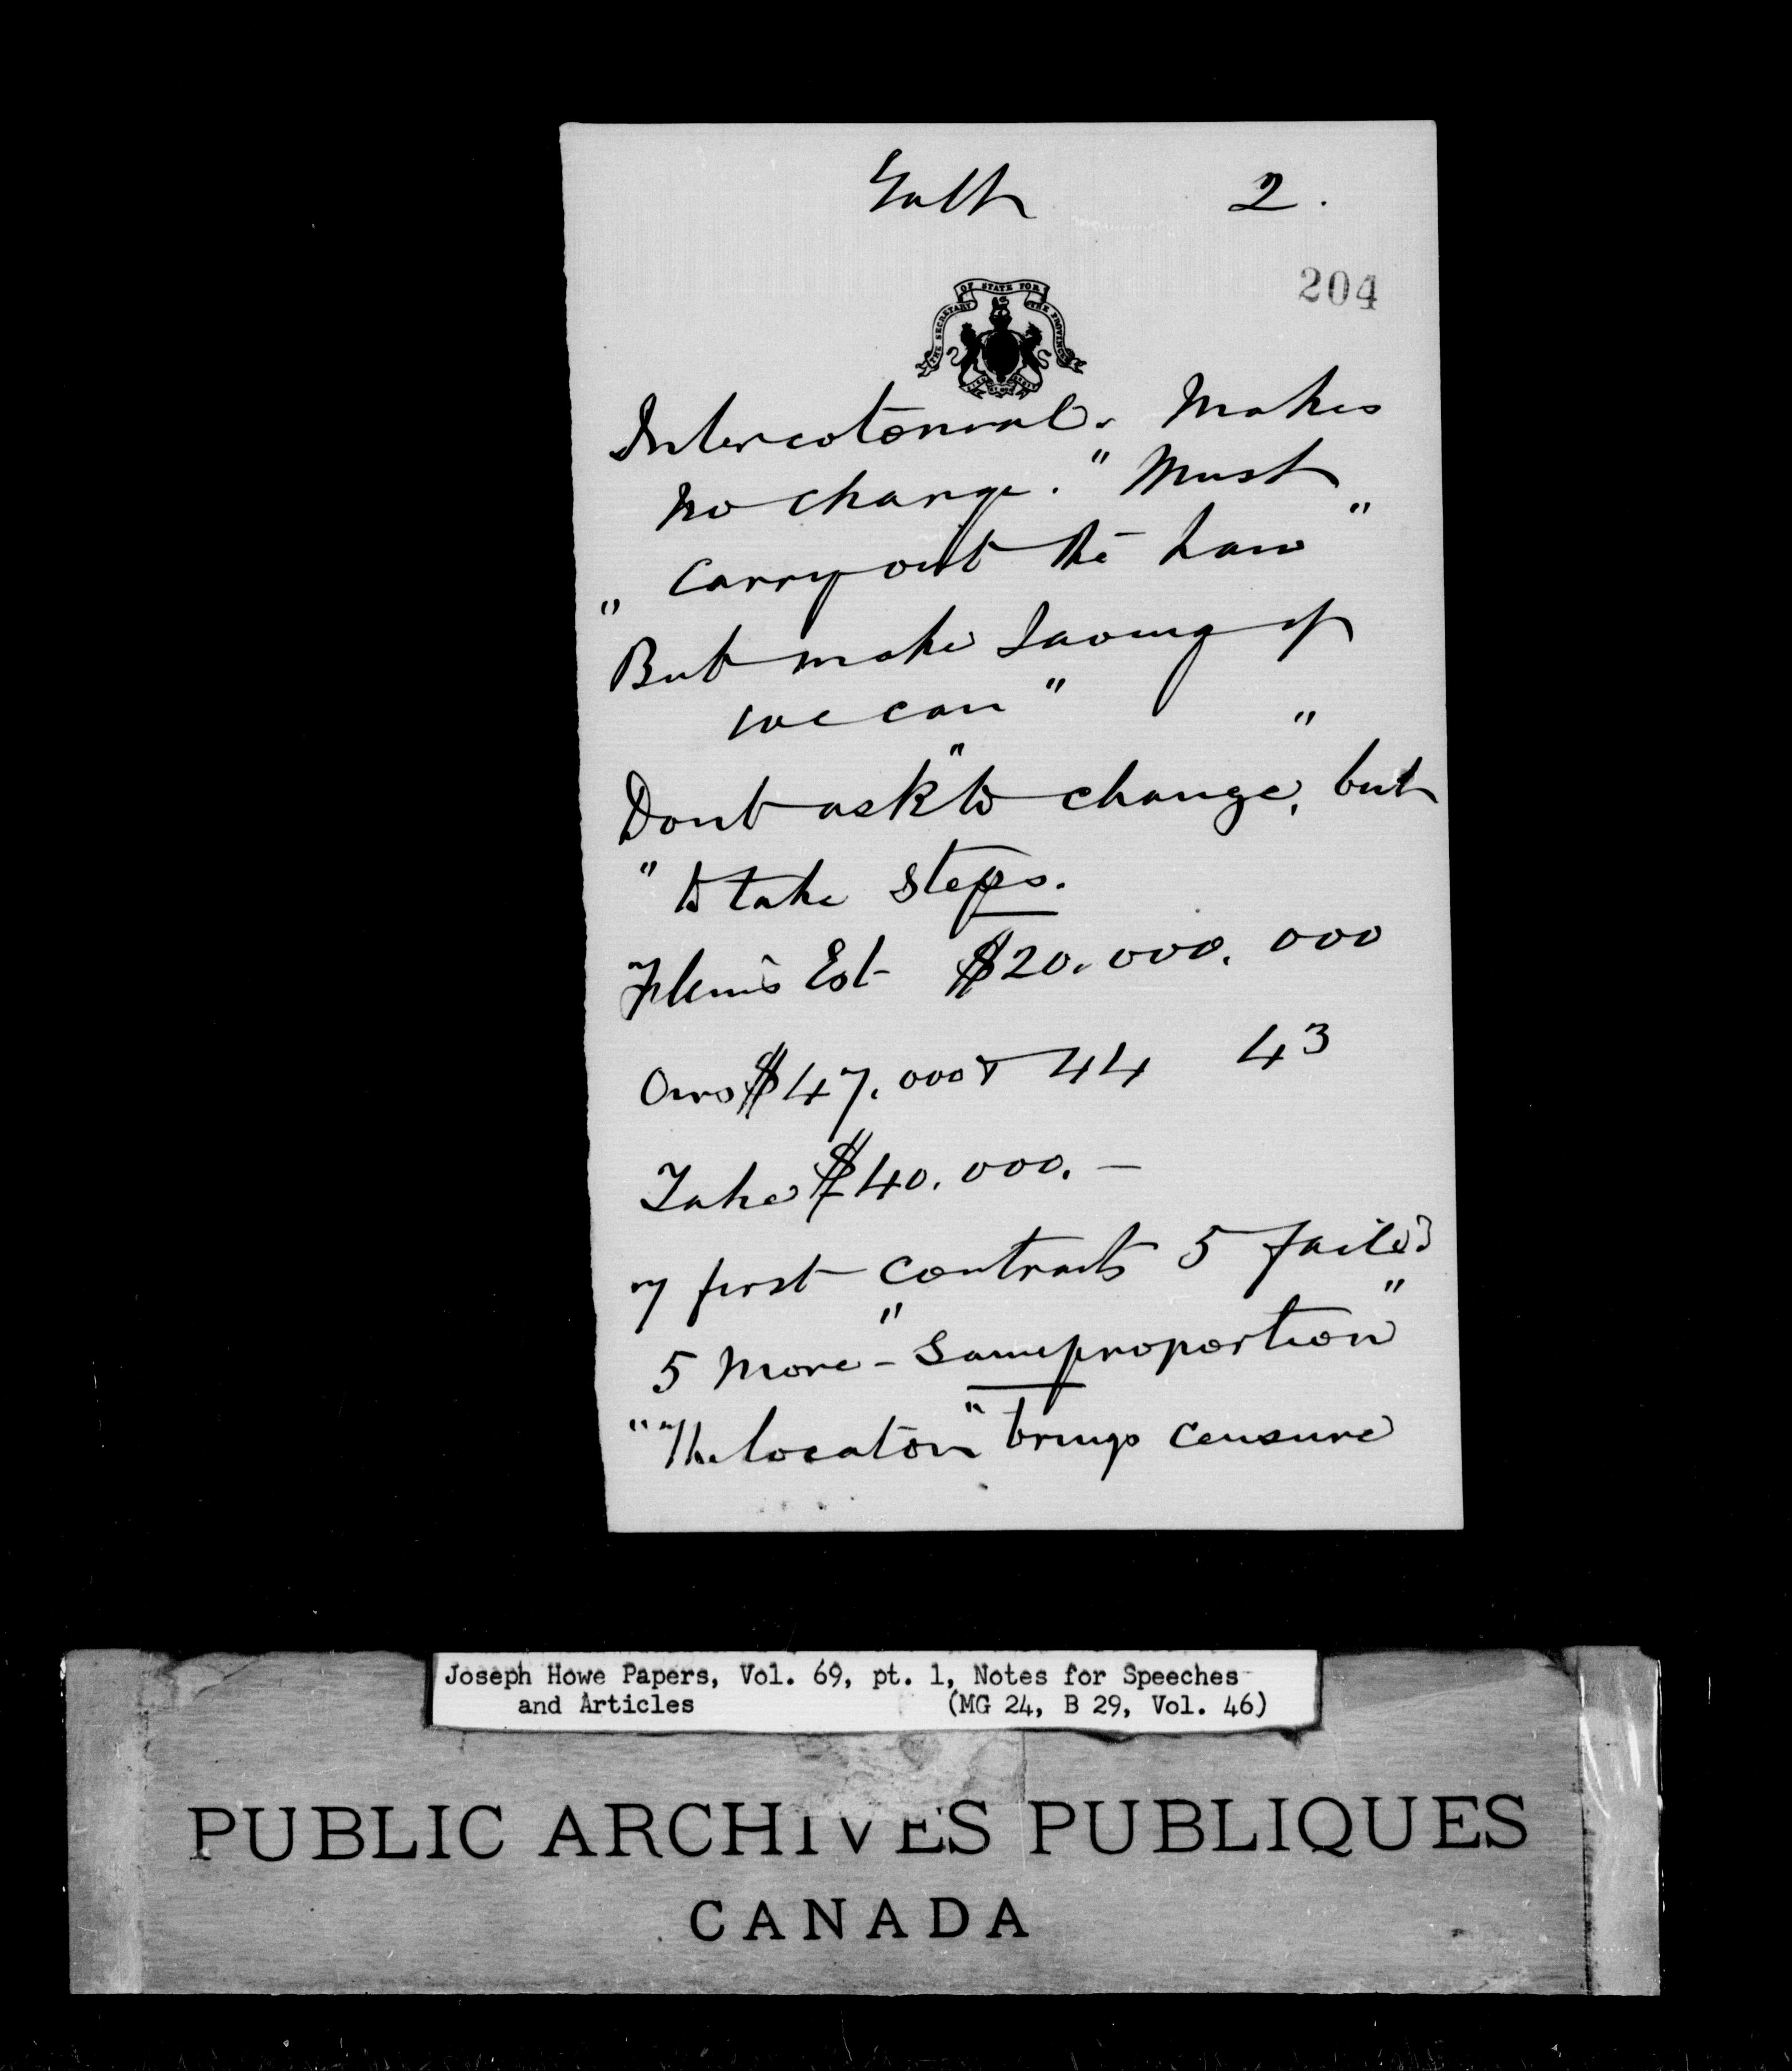 Galt 2.
204
THE SECRETARY OF STATE FOR THE PROVINCES
Intercolonial. Makes
no change. "Must
" carry out the Law "
But make Saving if
we can"
Dont ask "to change," but
" to take steps.
Flem's Est $20.000.000
Ours $47.000 & 44 43
Take $40.000. —
7 first contracts 5 failed
5 More - "Same proportion"
"The location" brings censure
Joseph Howe Papers, Vol. 69, pt. 1, Notes for Speeches
and Articles (MG 24, B 29, Vol. 46)
PUBLIC ARCHIVES PUBLIQUES
CANADA